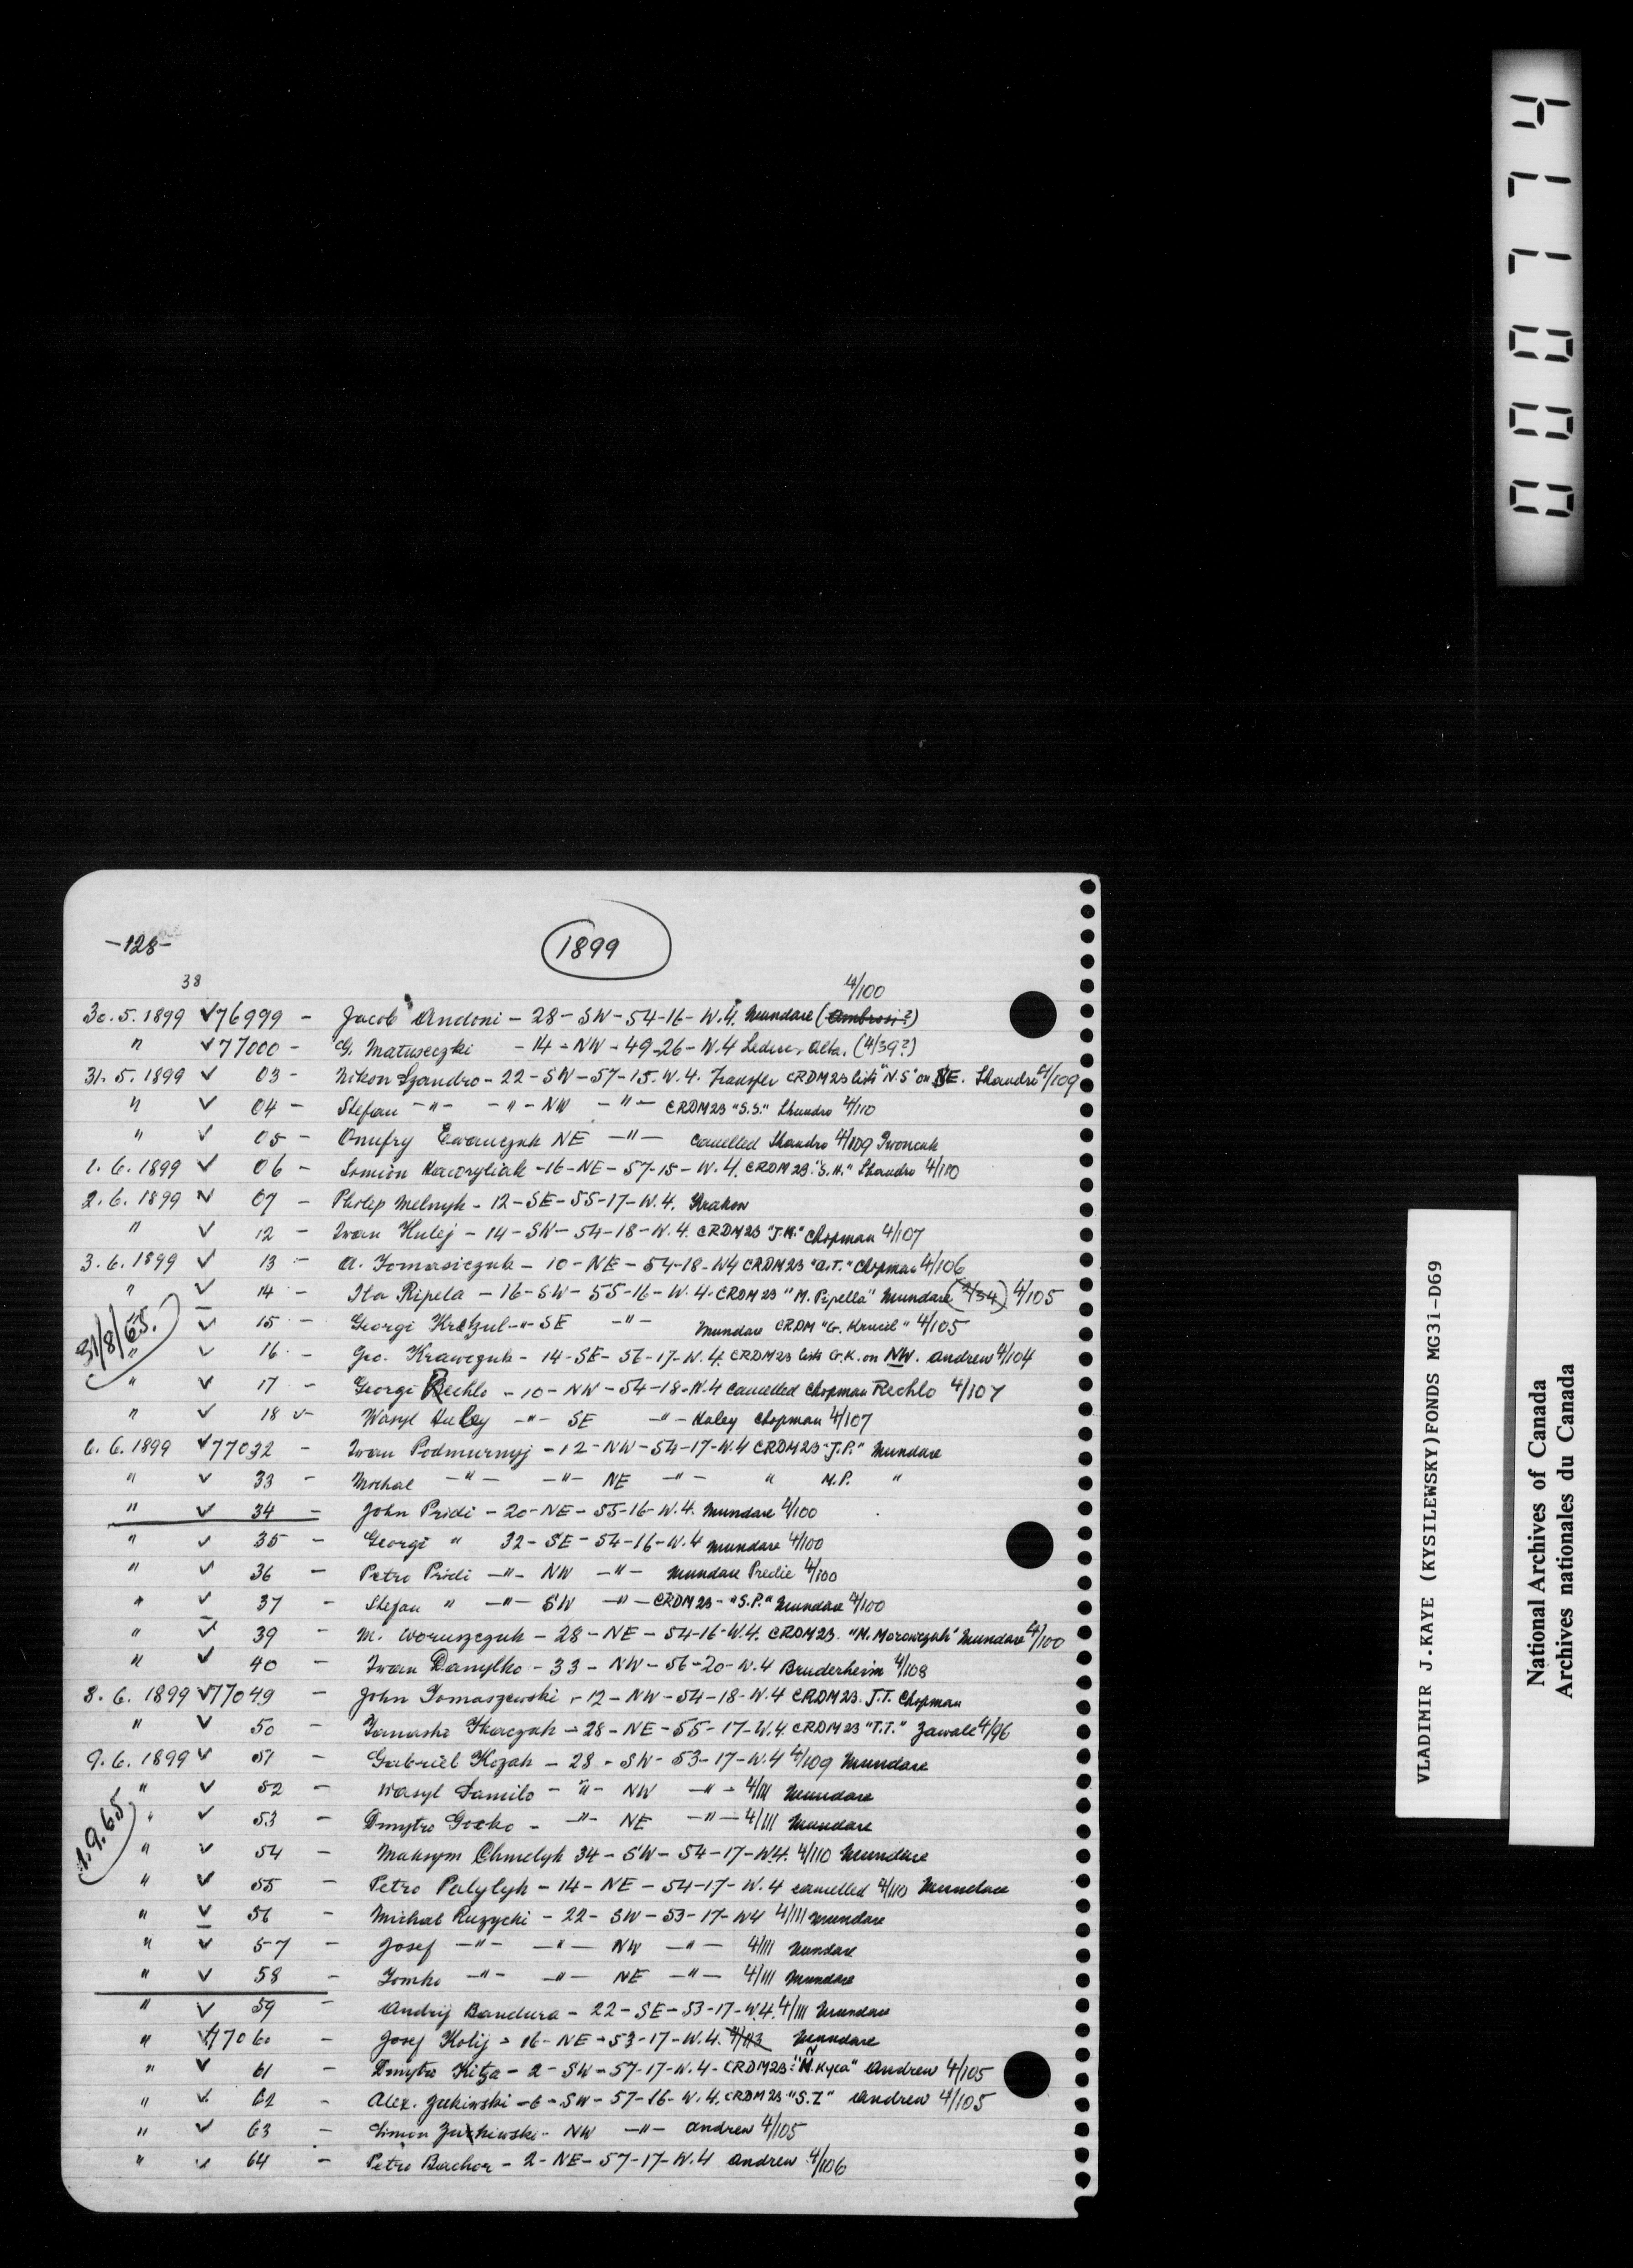 -128-
1899
38
4/100
30.5.1899 ✓76999 - Jacob Andoni - 28 - SW - 54-16 - W.4. Mundare (Ambrosi?)
" ✓77000 - G. Matuseczki - 14 - NW - 49-26 - W.4 Leduc, Alta. (4/39?)
31.5.1899 ✓ 03 - Nikon Szandro - 22 - SW - 57-15. W.4. Transfer CRDM23 lists "N.S" on NE. Shandro 4/109
" ✓ 04 - Stefan -"- -"- NW -"- CRDM23 "S.S." Shandro 4/110
" ✓ 05 - Onufry Ewanczuk NE -"- Cancelled Shandro 4/109 Iwonczuk
1.6.1899 ✓ 06 - Simion Hawryliak - 16 - NE - 57-15 - W.4. CRDM 23: "S.H." Shandro 4/110
2.6.1899 ✓ 07 - Philip Melnyk - 12 - SE - 55-17 - W.4. Krakow
" ✓ 12 - Iwan Hulej - 14 - SW - 54-18 - W.4. CRDM23 "J.H." Chipman 4/107
3.6.1899 ✓ 13 - A. Tomasiczuk - 10 - NE - 54-18 - W4 CRDM23 "A.T." Chipman 4/106
" ✓ 14 - Ila Ripela - 16 - SW - 55-16 - W.4. CRDM 23 "M. Pipella" Mundare (2/34) 4/105
31/8/65.
✓ 15 - Georgi Kretzul -"- SE -"- Mundare CRDM "G. Krucil" 4/105
" ✓ 16 - Geo. Krawczuk - 14 - SE - 56-17 - W.4. CRDM23 lists G.K. on NW. Andrew 4/104
" ✓ 17 - Georgi Rechlo - 10 - NW - 54-18 - W.4 Cancelled Chipman Rechlo 4/107
" ✓ 18 ✓- Wasyl Huley -"- SE -"- Haley Chipman 4/107
6.6.1899 ✓77032 - Iwan Podmurnyj - 12 - NW - 54-17 - W.4 CRDM23 "J.P." Mundare
" ✓ 33 - Michal -"- -"- NE -"- " M.P. "
" ✓ 34 - John Pridi - 20 - NE - 55-16 - W.4. Mundare 4/100
" ✓ 35 - Georgi " 32 - SE - 54-16 - W.4 Mundare 4/100
" ✓ 36 - Petro Pridi -"- NW -"- Mundare Predie 4/100
" ✓ 37 - Stefan " -"- SW -"- CRDM23 - "S.P." Mundare 4/100
" ✓ 39 - M. Woruszczuk - 28 - NE - 54-16 - W.4. CRDM23. "M. Morowczuk" Mundare 4/100
" ✓ 40 - Iwan Danylko - 33 - NW - 56-20 - W.4 Bruderheim 4/108
8.6.1899 ✓77049 - John Tomaszewski - 12 - NW - 54-18 - W.4 CRDM23. J.T. Chipman
" ✓ 50 - Tanasko Tkaczuk - 28 - NE - 55-17 - W.4. CRDM23 "T.T." Zawale 4/96
9.6.1899 ✓ 51 - Gabriel Kozak - 28 - SW - 53-17 - W.4 4/109 Mundare
" ✓ 52 - Wasyl Danilo -"- NW -"- 4/111 Mundare
1.9.65
" ✓ 53 - Dmytro Gocko - -"- NE -"- 4/111 Mundare
" ✓ 54 - Maksym Chmelyk 34 - SW - 54-17 - W.4. 4/110 Mundare
" ✓ 55 - Petro Palylyk - 14 - NE - 54-17 - W.4 cancelled 4/110 Mundare
" ✓ 56 - Michal Ruzycki - 22 - SW - 53-17 - W4 4/111 Mundare
" ✓ 57 - Josef -"- -"- NW -"- 4/111 Mundare
" ✓ 58 - Tomko -"- -"- NE -"- 4/111 Mundare
" ✓ 59 - Andrij Bandura - 22 - SE - 53-17 - W.4. 4/111 Mundare
" ✓77060 - Josef Kolij - 16 - NE - 53-17 - W.4. 4/113 Mundare
" ✓ 61 - Dmytro Kitza - 2 - SW - 57-17 - W.4 - CRDM23: "N. Kyca" Andrew 4/105
" ✓ 62 - Alex. Zukiwski - 6 - SW - 57-16 - W.4. CRDM23 "S.Z" Andrew 4/105
" ✓ 63 - Simon Zukiwski - NW -"- Andrew 4/105
" ✓ 64 - Petro Bachor - 2 - NE - 57-17 - W.4 Andrew 4/106
000774
VLADIMIR J.KAYE (KYSILEWSKY)FONDS MG31-D69
National Archives of Canada
Archives nationales du Canada